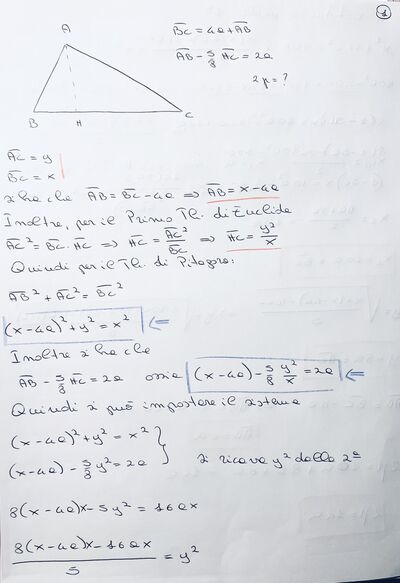 1
A
B H C
B̅C̅ = 4a + A̅B̅
A̅B̅ - 5/8 H̅C̅ = 2a
2p = ?
A̅C̅ = y
B̅C̅ = x
si ha che A̅B̅ = B̅C̅ - 4a ⇒ A̅B̅ = x - 4a
Inoltre, per il Primo Th. di Euclide
A̅C̅² = B̅C̅ · H̅C̅ ⇒ H̅C̅ = A̅C̅²/B̅C̅ ⇒ H̅C̅ = y²/x
Quindi per il Th. di Pitagora:
A̅B̅² + A̅C̅² = B̅C̅²
(x - 4a)² + y² = x² ⇐
Inoltre si ha che
A̅B̅ - 5/8 H̅C̅ = 2a ossia (x - 4a) - 5/8 y²/x = 2a ⇐
Quindi si può impostare il sistema
(x - 4a)² + y² = x² }
(x - 4a) - 5/8 y² = 2a } si ricava y² dalla 2ª
8(x - 4a)x - 5y² = 16ax
8(x - 4a)x - 16ax / 5 = y²